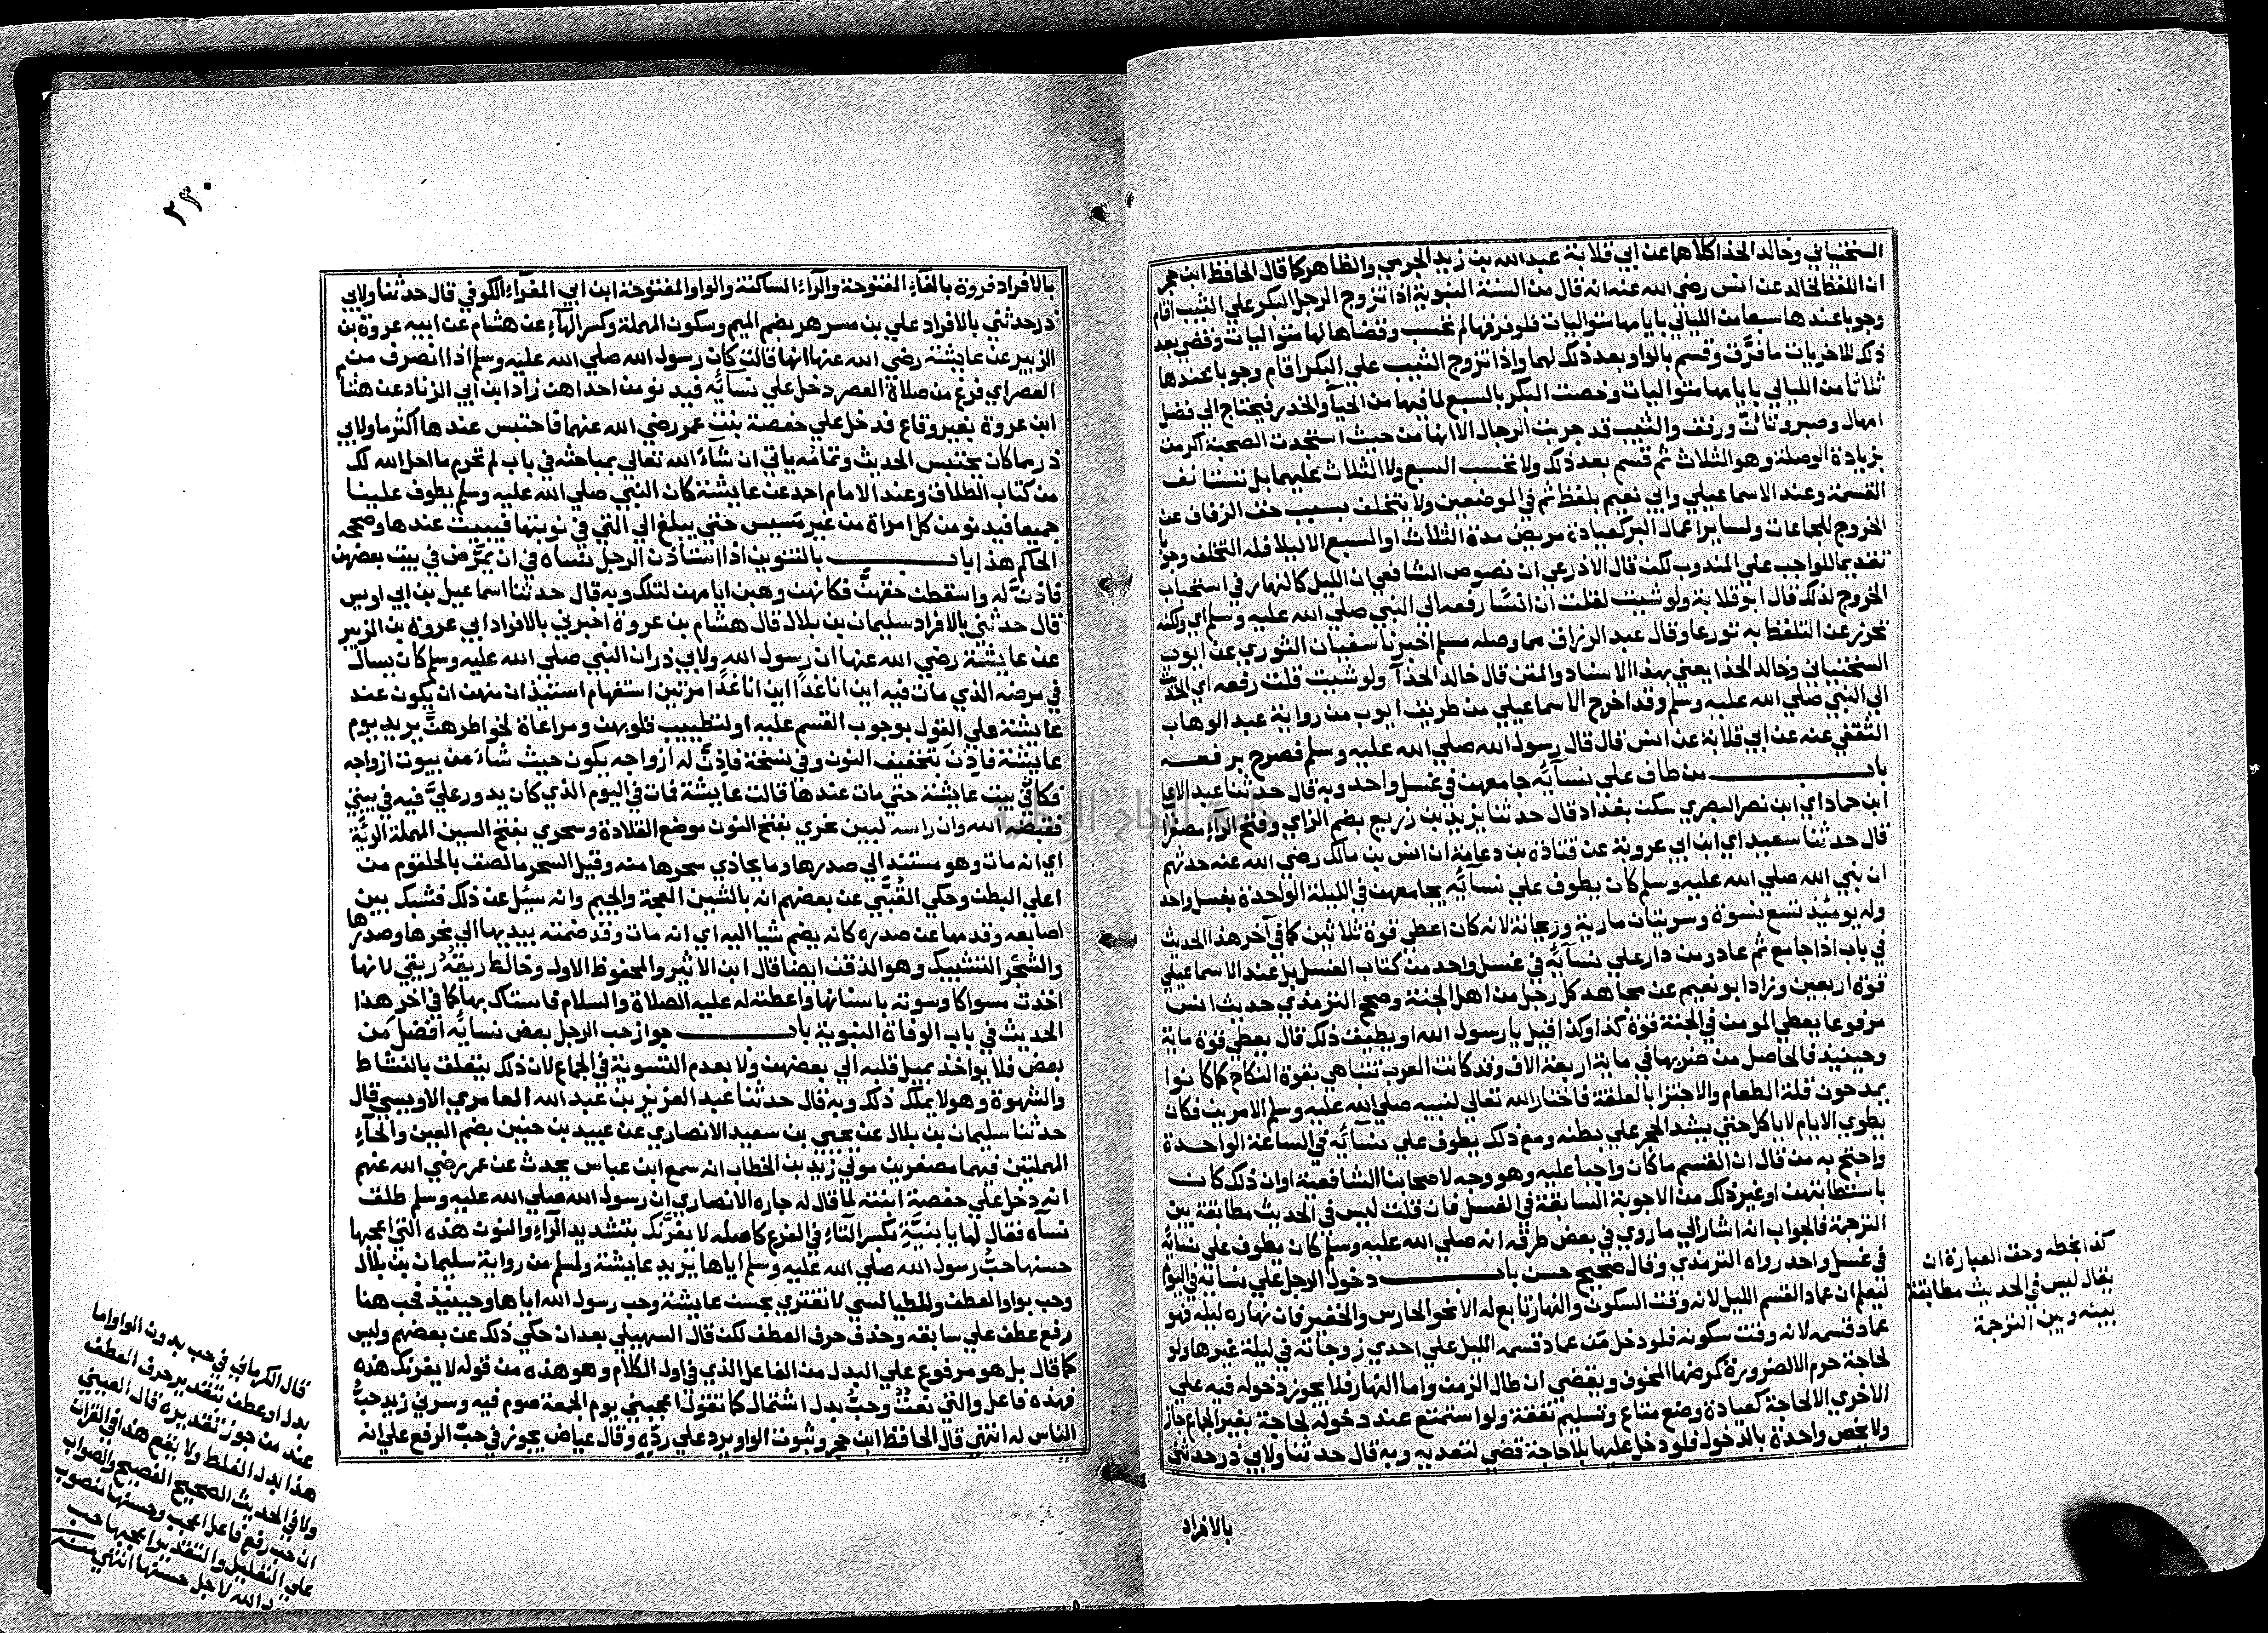 السختياني وخالد الحذا كلاهما عن ابي قلابة عبد الله بن زيد الجرمي والظاهر كما قال الحافظ ابن حجر
ان اللفظ لخالد عن انس رضي الله عنه انه قال من السنة النبوية اذا تزوج الرجل البكر علي الثيب اقام
وجوبا عندها سبعا من الليالي بايامها متواليات فلو فرقها لم تحسب وقضاها لها متواليات وقضي بعد
ذلك للاخريات ما فرَّق وقسم بالواو بعد ذلك لهما واذا تزوج الثيب علي البكر اقام وجوبا عندها
ثلاثا من الليالي بايامها متواليات وخصت البكر بالسبع لما فيها من الحيآ والخدر فيحتاج الي فضل
امهال وصبر وتانّ ورفق والثيب قد جربت الرجال الا انها من حيث استجدت الصحبة اكرمت
بزيادة الوصلة وهو الثلاث ثم قسم بعد ذلك ولا تحسب السبع ولا الثلاث عليهما بل تستانف
القسمة وعند الاسماعيلي وابي نعيم بلفظ ثم في الموضعين ولا يتخلف بسبب حق الزفاف عن
الخروج للجماعات ولساير اعمال البر كعيادة مريض مدة الثلاث او السبع الا ليلا فله التخلف وجوبا
تقديما للواجب علي المندوب لكن قال الاذرعي ان نصوص الشافعي ان الليل كالنهار في استحباب
الخروج لذلك قال ابو قلابة ولو شيت لقلت ان انسًا رفعه الي النبي صلي الله عليه وسلم اي ولكنه
تحرز عن التلفظ به تورعا وقال عبد الرزاق مما وصله مسلم اخبرنا سفيان الثوري عن ايوب
السختياني وخالد الحذا يعني بهذا الاسناد والمتن قال خالد الحذآ ولو شيت قلت رفعه اي الحديث
الي النبي صلي الله عليه وسلم وقد اخرج الاسماعيلي من طريق ايوب من رواية عبد الوهاب
الثقفي عنه عن ابي قلابة عن انس قال قال رسول الله صلي الله عليه وسلم فصرح برفعه
باب من طاف علي نسآيه جامعهن في غسل واحد وبه قال حدثنا عبد الاعلا
ابن حماد اي ابن نصر البصري سكن بغداد قال حدثنا يزيد بن زريع بضم الزاي وفتح الرآء مصغرًا
قال حدثنا سعيد اي ابن ابي عروبة عن قتادة بن دعامة ان انس بن مالك رضي الله عنه حدثهم
ان نبي الله صلي الله عليه وسلم كان يطوف علي نسآيه يجامعهن في الليلة الواحدة بغسل واحد
وله يومئذ تسع نسوة وسريتان مارية وريحانة لانه كان اعطي قوة ثلاثين كما في آخر هذا الحديث
في باب اذا جامع ثم عاد ومن دار علي نسآيه في غسل واحد من كتاب الغسل بل عند الاسماعيلي
قوة اربعين وزاد ابو نعيم عن مجاهد كل رجل من اهل الجنة وصحح الترمذي حديث انس
مرفوعا يعطي المومن في الجنة قوة كذا وكذا قيل يا رسول الله او يطيق ذلك قال يعطي قوة ماية
وحينيذ فالحاصل من ضربها في ماية اربعة الاف وقد كانت العرب تتباهي بقوة النكاح كما كانوا
يمدحون قلة الطعام والاجتزا بالعلقة فاختار الله تعالي لنبيه صلي الله عليه وسلم الامرين فكان
يطوي الايام لا ياكل حتي يشد الحجر علي بطنه ومع ذلك يطوف علي نسآئه في الساعة الواحدة
واحتج به من قال ان القسم ما كان واجبا عليه وهو وجه لاصحابنا الشافعية او ان ذلك كان
باستطابتهن او غير ذلك من الاجوبة السابقة في الغسل فان قلت ليس في الحديث مطابقة بين
الترجمة فالجواب انه اشار الي ما روي في بعض طرقه انه صلي الله عليه وسلم كان يطوف علي نسائه
في غسل واحد رواه الترمذي وقال صحيح حسن باب دخول الرجل علي نسايه في اليوم
ليعلم ان عماد القسم الليل لانه وقت السكون والنهار تابع له الا نحو الحارس والخضير فان نهاره ليله فهو
عماد قسمه لانه وقت سكونه فلو دخل من عماد قسمه الليل علي احدي زوجاته في ليلة غيرها ولو
لحاجة حرم الا لضرورة كمرضها المخوف ويقضي ان طال الزمن واما النهار فلا يجوز دخوله فيه علي
الاخري الا لحاجة كعيادة وضع متاع وتسليم نفقة ولو استمتع عند دخوله لحاجة بغير الجماع جاز
ولا يخص واحدة بالدخول فلو دخل عليها بلا حاجة قضي لتعديه وبه قال حدثنا ولابي ذر حدثني
بالافراد
كذا بخطه وحق العبارة ان
يقال ليس في الحديث مطابقة
بينه وبين الترجمة
٢٣٠
بالافراد فروة بالفآء المفتوحة والرآء الساكنة والواو المفتوحة ابن ابي المغرآء الكوفي قال حدثنا ولابي
ذر حدثني بالافراد علي بن مسهر بضم الميم وسكون المهملة وكسر الهآء عن هشام عن ابيه عروة بن
الزبير عن عايشة رضي الله عنها انها قالت كان رسول الله صلي الله عليه وسلم اذا انصرف من
العصر اي فرغ من صلاة العصر دخل علي نسآئه فيدنو من احداهن زاد ابن ابي الزناد عن هشام
ابن عروة بغير وقاع فدخل علي حفصة بنت عمر رضي الله عنهما فاحتبس عندها اكثر ما ولابي
ذر مما كان يحتبس الحديث وتمامه ياتي ان شآء الله تعالي بمباحثه في باب لم تحرم ما احل الله لك
من كتاب الطلاق وعند الامام احمد عن عايشة كان النبي صلي الله عليه وسلم يطوف علينا
جميعا فيدنو من كل امراة من غير مسيس حتي يبلغ الي التي هي نوبتها فيبيت عندها وصححه
الحاكم هذا باب بالتنوين اذا استاذن الرجل نساه في ان يمرض في بيت بعضهن
فاذنَّ له واسقطت حقهنَّ فكانهن وهبن ايامهن لتلك وبه قال حدثنا اسماعيل بن ابي اويس
قال حدثني بالافراد سليمان بن بلال قال هشام بن عروة اخبرني بالافراد ابي عروة بن الزبير
عن عايشة رضي الله عنها ان رسول الله ولابي ذر ان النبي صلي الله عليه وسلم كان يسال
في مرضه الذي مات فيه اين انا غدا اين انا غدًا مرتين استفهام استيذان منهن ان يكون عند
عايشة علي القول بوجوب القسم عليه او لتطييب قلوبهن ومراعاة لخواطرهنَّ يريد يوم
عايشة فاذن بتخفيف النون وفي نسخة فاذنَّ له ازواجه يكون حيث شآء من بيوت ازواجه
فكان في بيت عايشة حتي مات عندها قالت عايشة فمات في اليوم الذي كان يدور عليَّ فيه في بيتي
فقبضه الله وان راسه لبين نحري بفتح النون موضع القلادة وسحري بفتح السين المهملة الرية
اي انه مات وهو مستند الي صدرها وما يحاذي سحرها منه وقيل السحر ما لصق بالحلقوم من
اعلي البطن وحكي القتبي عن بعضهم انه بالشين المعجمة والجيم وانه سئل عن ذلك فشبك بين
اصابعه وقدمها عن صدره كانه يضم شيا اليه اي انه مات وقد ضمته بيديها الي نحرها وصدرها
والشجر التشبيك وهو الذقن ايضا قال ابن الاثير والمحفوظ الاول وخالط ريقهُ ريقي لانها
اخذت مسواكا وسوته باسنانها واعطته له عليه الصلاة والسلام فاستاك به كما في اخر هذا
الحديث في باب الوفاة النبوية باب جواز حب الرجل بعض نسايه افضل من
بعض فلا يواخذ بميل قلبه الي بعضهن ولا بعدم التسوية في الجماع لان ذلك يتعلق بالنشاط
والشهوة وهو لا يملك ذلك وبه قال حدثنا عبد العزيز بن عبد الله العامري الاويسي قال
حدثنا سليمان بن بلال عن يحيي بن سعيد الانصاري عن عبيد بن حنين بضم العين والحآء
المهملتين فيهما مصغرين مولي زيد بن الخطاب انه سمع ابن عباس يحدث عن عمر رضي الله عنهم
انه دخل علي حفصة ابنته لما قال له جاره الانصاري ان رسول الله صلي الله عليه وسلم طلق
نسآه فقال لها يا بنيَّةِ بكسر التآء في الفرع كاصله لا يغرَّنك بتشديد الرآء والنون هذه التي اعجبها
حسنها حبُّ رسول الله صلي الله عليه وسلم اياها يريد عايشة ولمسلم من رواية سليمان بن بلال
وحب بواو العطف وللطيالسي لا تغتري بحسن عايشة وحب رسول الله اياها وحينيذ فحب هنا
رفع عطف علي سابقه وحذف حرف العطف لكن قال السهيلي بعد ان حكي ذلك عن بعضهم وليس
كما قال بل هو مرفوع علي البدل من الفاعل الذي في اول الكلام وهو هذه من قوله لا يغرنك هذه
فهذه فاعل والتي نعت وحبُّ بدل اشتمال كما تقول اعجبني يوم الجمعة صوم فيه وسرني زيد حبُّ
الناس له انتهي قال الحافظ ابن حجر وثبوت الواو يرد علي ردّه وقال عياض يجوز في حبّ الرفع علي انه
قال الكرماني في حب بدون الواو اما
بدل او عطف بتقدير حرف العطف
عند من جوز تقديره قال العيني
هذا بدل الغلط ولا يقع هذا في القران
ولا في الحديث الصحيح الفصيح والصواب
ان حب رفع فاعل اعجب وحسنها منصوب
علي التعليل والتقدير اعجبها حب
رسول الله لاجل حسنها انتهي منه